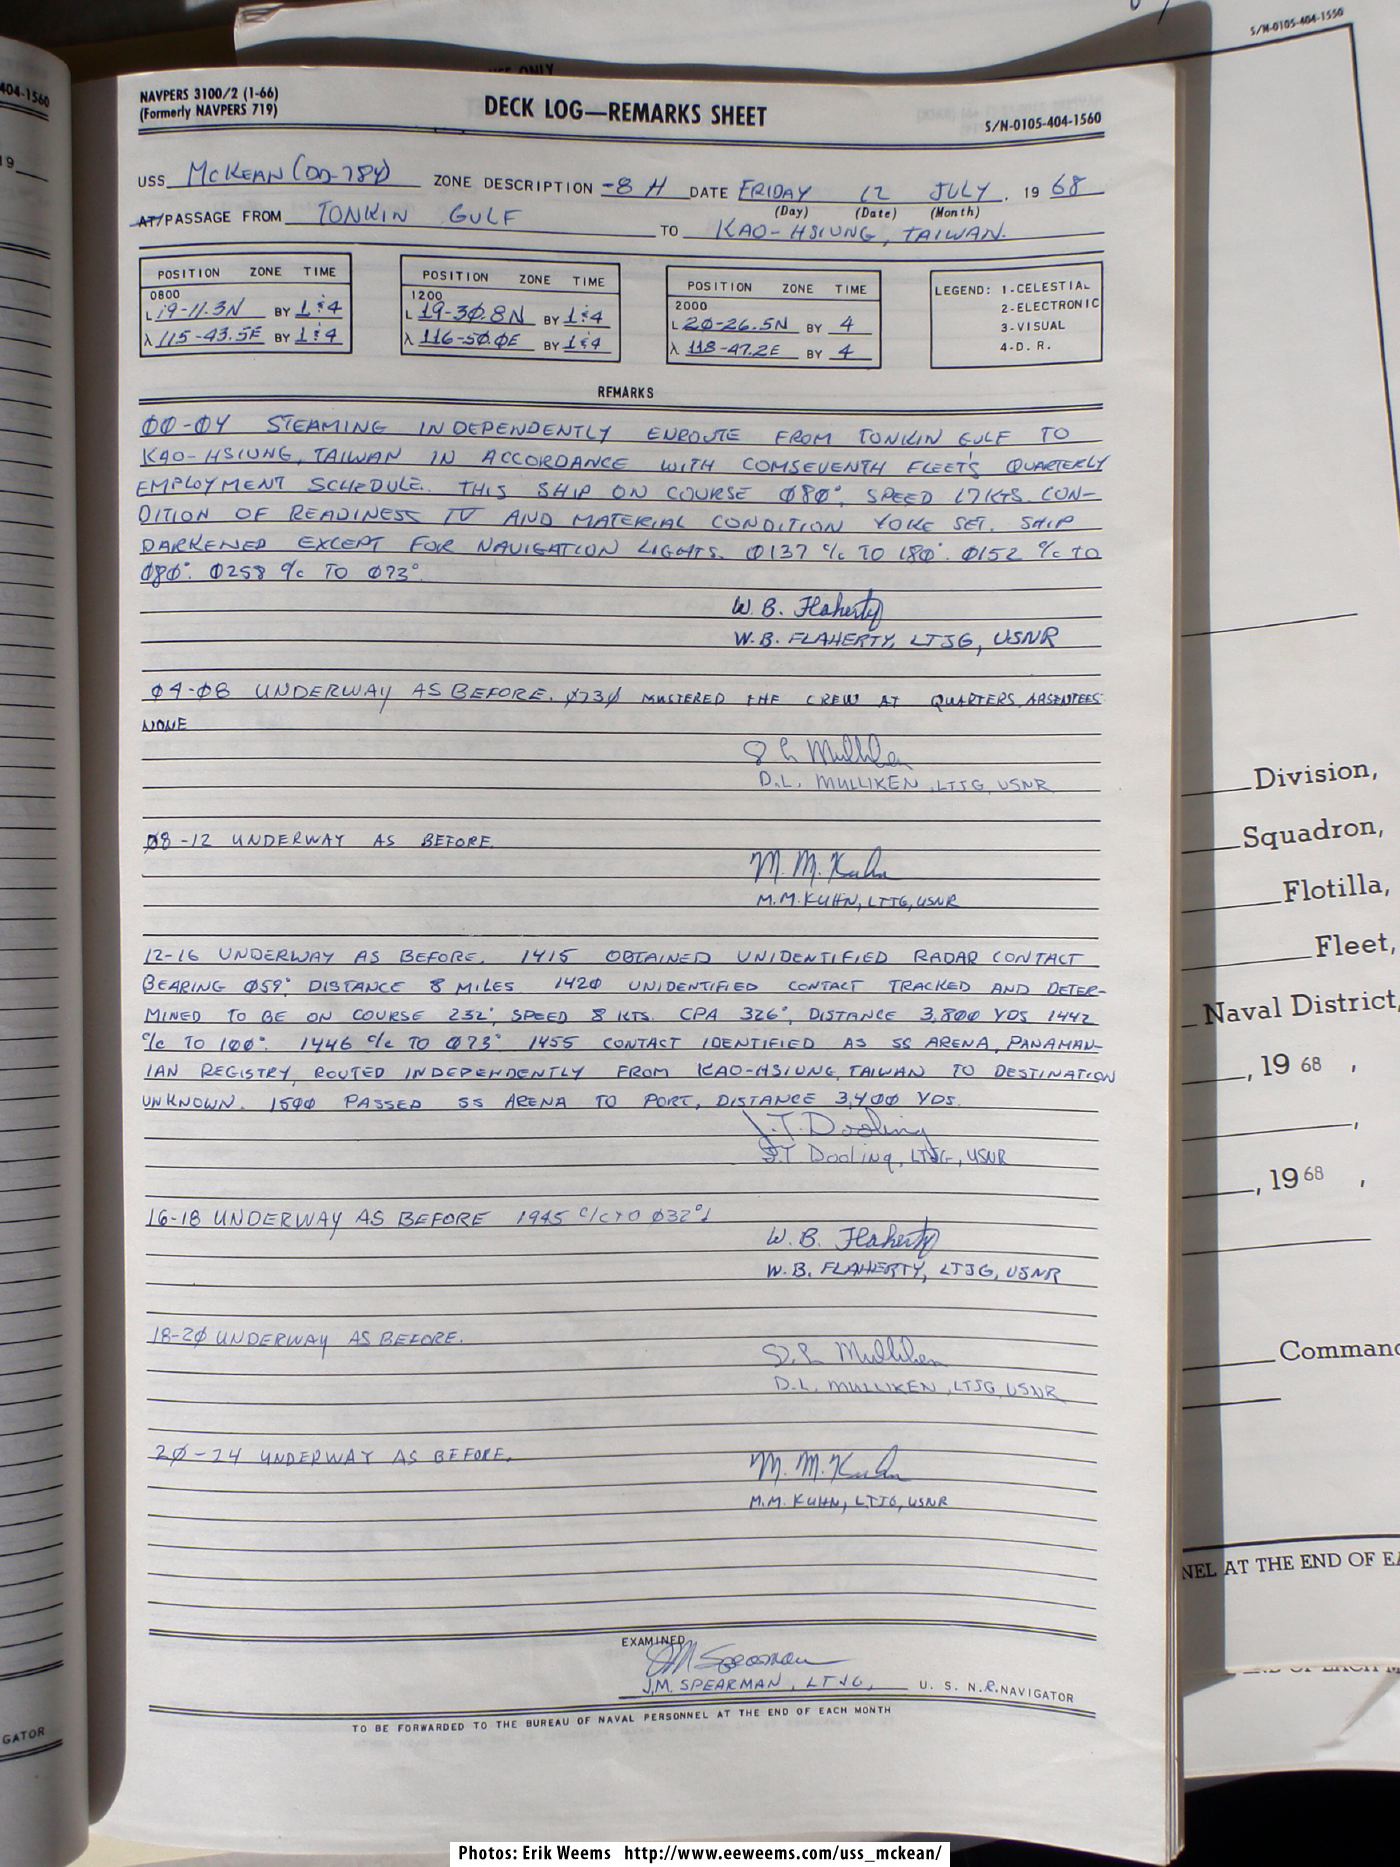 404-1560
19
USE ONLY
S/N-0105-404-1550
NAVPERS 3100/2 (1-66)
(Formerly NAVPERS 719)
DECK LOG—REMARKS SHEET
S/N-0105-404-1560
USS McKEAN (DD-784) ZONE DESCRIPTION -8 H DATE FRIDAY 12 JULY, 19 68
(Day) (Date) (Month)
AT/PASSAGE FROM TONKIN GULF TO KAO-HSIUNG, TAIWAN.
POSITION ZONE TIME
0800
L 19-11.3N BY 1 & 4
λ 115-43.5E BY 1 & 4
POSITION ZONE TIME
1200
L 19-30.8N BY 1 & 4
λ 116-50.0E BY 1 & 4
POSITION ZONE TIME
2000
L 20-26.5N BY 4
λ 118-47.2E BY 4
LEGEND: 1-CELESTIAL
2-ELECTRONIC
3-VISUAL
4-D. R.
REMARKS
00-04 STEAMING INDEPENDENTLY ENROUTE FROM TONKIN GULF TO
KAO-HSIUNG, TAIWAN IN ACCORDANCE WITH COMSEVENTH FLEET'S QUARTERLY
EMPLOYMENT SCHEDULE. THIS SHIP ON COURSE 080°, SPEED 17 KTS. CON-
DITION OF READINESS IV AND MATERIAL CONDITION YOKE SET. SHIP
DARKENED EXCEPT FOR NAVIGATION LIGHTS. 0137 C/C TO 180°. 0152 C/C TO
080°. 0258 C/C TO 073°
W. B. Flaherty
W.B. FLAHERTY, LTJG, USNR
04-08 UNDERWAY AS BEFORE. 0730 MUSTERED THE CREW AT QUARTERS, ABSENTEES
NONE
D L Mulliken
D.L. MULLIKEN, LTJG, USNR
08-12 UNDERWAY AS BEFORE.
M. M. Kuhn
M.M. KUHN, LTJG, USNR
12-16 UNDERWAY AS BEFORE. 1415 OBTAINED UNIDENTIFIED RADAR CONTACT
BEARING 059°, DISTANCE 8 MILES 1420 UNIDENTIFIED CONTACT TRACKED AND DETER-
MINED TO BE ON COURSE 232°, SPEED 8 KTS. CPA 326°, DISTANCE 3,800 YDS 1442
C/C TO 100°. 1446 C/C TO 073° 1455 CONTACT IDENTIFIED AS SS ARENA, PANAMAN-
IAN REGISTRY, ROUTED INDEPENDENTLY FROM KAO-HSIUNG, TAIWAN TO DESTINATION
UNKNOWN. 1500 PASSED SS ARENA TO PORT, DISTANCE 3,400 YDS.
J. T. Dooling
J.T. Dooling, LTJG, USNR
16-18 UNDERWAY AS BEFORE 1945 C/C TO 032°
W. B. Flaherty
W.B. FLAHERTY, LTJG, USNR
18-20 UNDERWAY AS BEFORE.
D. L Mulliken
D.L. MULLIKEN, LTJG, USNR
20-24 UNDERWAY AS BEFORE.
M. M. Kuhn
M.M. KUHN, LTJG, USNR
EXAMINED
JM Spearman
J.M. SPEARMAN, LTJG, U. S. N.R. NAVIGATOR
TO BE FORWARDED TO THE BUREAU OF NAVAL PERSONNEL AT THE END OF EACH MONTH
GATOR
Division,
Squadron,
Flotilla,
Fleet,
Naval District,
, 19 68 ,
,
, 19 68 ,
Comman
NEL AT THE END OF EA
Photos: Erik Weems http://www.eeweems.com/uss_mckean/